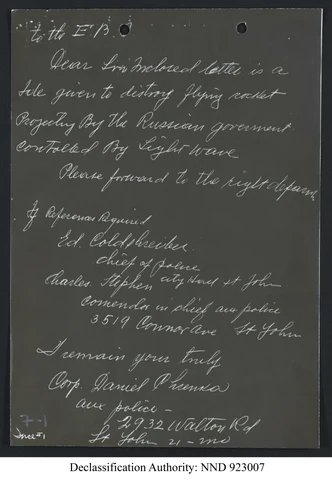 to the E B.
Dear Sir Inclosed letter is a
file given to distroy flying rocket
Projecting By the Russian goverment
Controlled By Light Wave
Please forward to the right
If References Required
Ed.
chief of police
Charles Stephen city Hall St John
comendor in chief aux police
3519 Connor Ave St John
I remain your truly
Corp. Daniel
aux police -
2932 Walton Rd
St John 21 - mo
7-1
Declassification Authority: NND 923007